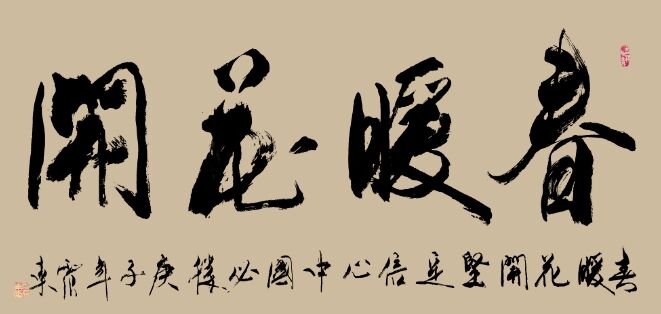 春暖花開
春暖花開堅定信心中國必勝庚子年